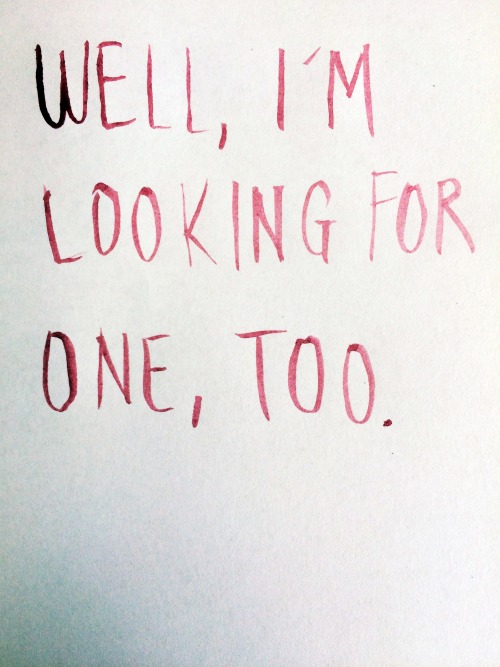 WELL, I'M
LOOKING FOR
ONE, TOO.